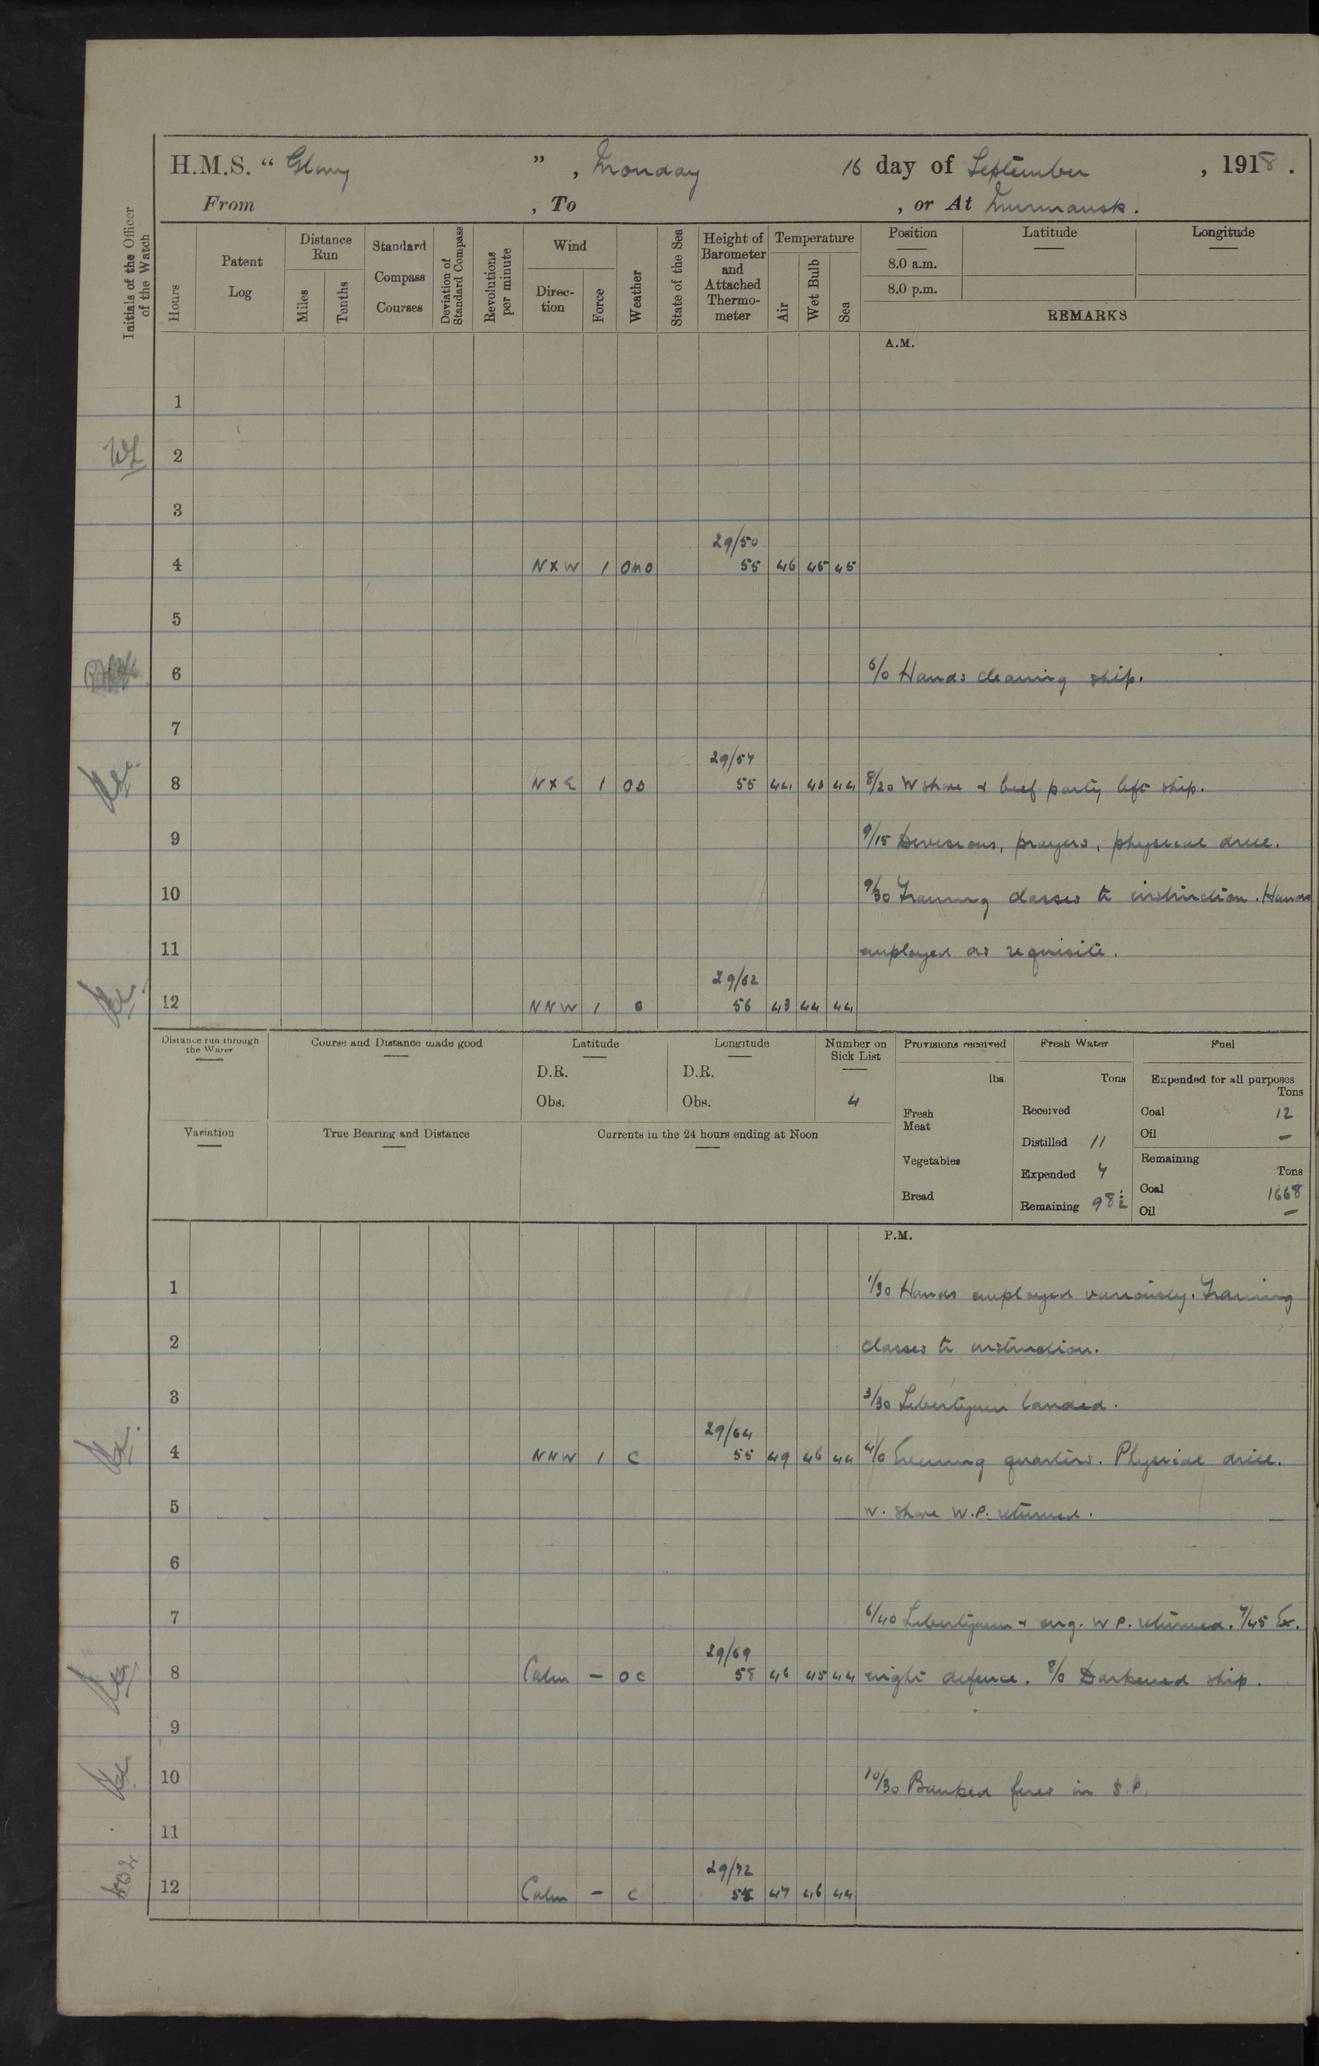 H.M.S. “ Glory ” , Monday 16 day of September , 1918 .
From , To , or At Murmansk.
Initials of the Officer of the Watch
Hours
Patent Log
Distance Run
Miles
Tenths
Standard Compass Courses
Deviation of Standard Compass
Revolutions per minute
Wind
Direc-tion
Force
Weather
State of the Sea
Height of Barometer and Attached Thermo-meter
Temperature
Air
Wet Bulb
Sea
Position
8.0 a.m.
8.0 p.m.
Latitude
Longitude
REMARKS
A.M.
1
2
3
29/50
4 NXW 1 OMO 55 46 45 45
5
6 6/0 Hands cleaning ship.
7
29/57
8 NXE 1 OD 55 44 43 44 8/20 W shore & beef party left ship.
9 9/15 Divisions, prayers, physical drill.
10 9/30 Training classes to instruction. Hands
11 employed as requisite.
29/62
12 NNW 1 O 56 43 44 44
Distance run through the Water
Course and Distance made good
Latitude
D.R.
Obs.
Longitude
D.R.
Obs.
Number on Sick List
4
Provisions received
lbs.
Fresh Meat
Vegetables
Bread
Fresh Water
Tons
Received
Distilled 11
Expended 7
Remaining 98½
Fuel
Expended for all purposes
Tons
Coal 12
Oil —
Remaining
Tons
Coal 1668
Oil —
Variation
True Bearing and Distance
Currents in the 24 hours ending at Noon
P.M.
1 1/30 Hands employed variously. Training
2 classes to instruction.
3 3/30 Libertymen landed.
29/64
4 NNW 1 C 55 49 46 44 4/0 Evening quarters. Physical drill.
5 W. shore W.P. returned.
6
7 6/40 Libertymen & eng. W P. returned. 7/45 Ex.
29/69
8 Calm — OC 58 46 45 44 night defence. 8/0 Darkened ship.
9
10 10/30 Banked fires in S.P.
11
29/72
12 Calm — C 47 46 44